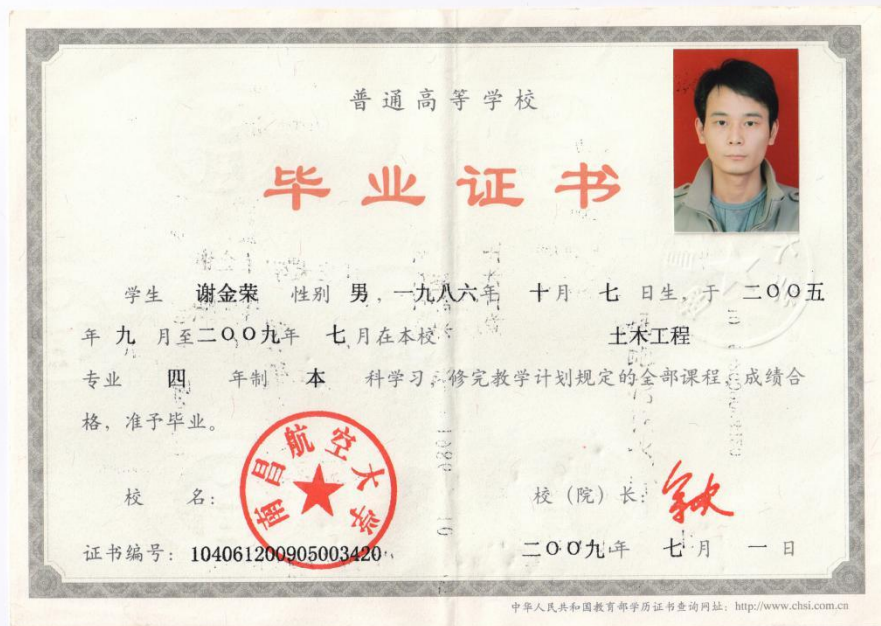 普通高等学校
毕业证书
学生 谢金荣 性别 男，一九八六年 十月 七 日生，于 二〇〇五
年 九 月至二〇〇九年 七月在本校 土木工程
专业 四 年制 本 科学习，修完教学计划规定的全部课程，成绩合
格，准予毕业。
南昌航空大学
校 名： 校（院）长：
证书编号：104061200905003420 二〇〇九年 七月 一日
中华人民共和国教育部学历证书查询网址：http://www.chsi.com.cn